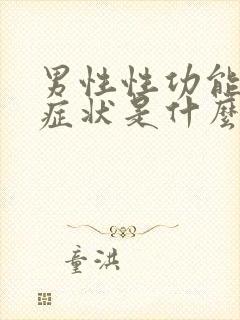 男性性功能
症状是什麽
童洪